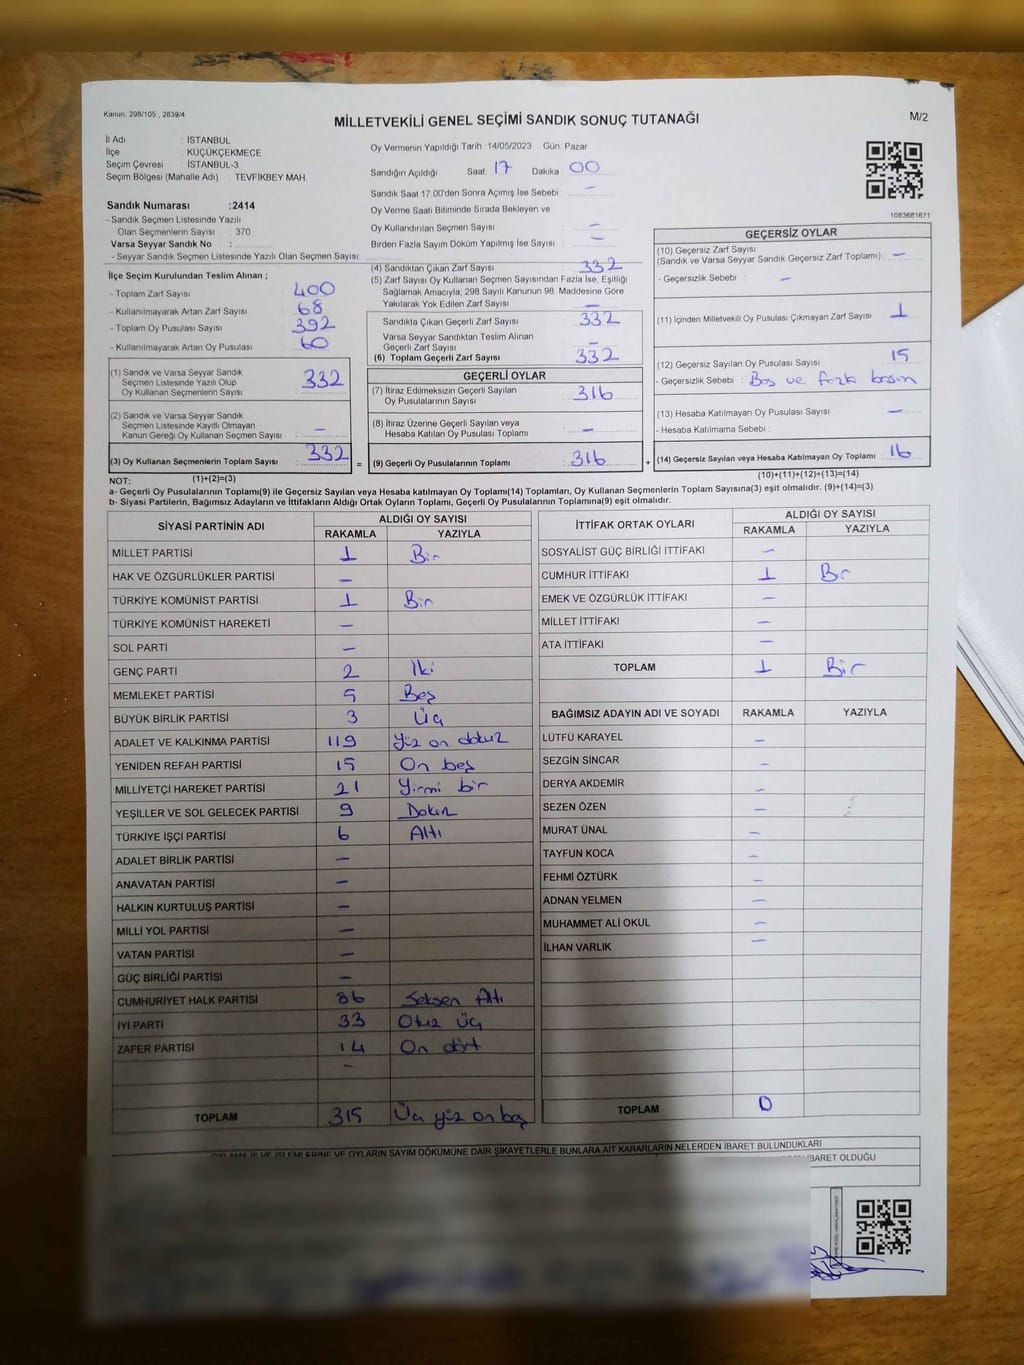 Kanun, 298/105 , 2839/4
MİLLETVEKİLİ GENEL SEÇİMİ SANDIK SONUÇ TUTANAĞI
M/2
İl Adı : İSTANBUL
İlçe : KÜÇÜKÇEKMECE
Seçim Çevresi : İSTANBUL-3
Seçim Bölgesi (Mahalle Adı) : TEVFİKBEY MAH.
Oy Vermenin Yapıldığı Tarih :14/05/2023 Gün: Pazar
Sandığın Açıldığı Saat: 17 Dakika: 00
Sandık Saat 17.00'den Sonra Açımış İse Sebebi : –
Oy Verme Saati Bitiminde Sırada Bekleyen ve
Oy Kullandırılan Seçmen Sayısı : –
Birden Fazla Sayım Döküm Yapılmış İse Sayısı : –
1083681671
Sandık Numarası :2414
- Sandık Seçmen Listesinde Yazılı
Olan Seçmenlerin Sayısı : 370
Varsa Seyyar Sandık No :
- Seyyar Sandık Seçmen Listesinde Yazılı Olan Seçmen Sayısı:
İlçe Seçim Kurulundan Teslim Alınan ;
- Toplam Zarf Sayısı : 400
- Kullanılmayarak Artan Zarf Sayısı : 68
- Toplam Oy Pusulası Sayısı : 392
- Kullanılmayarak Artan Oy Pusulası : 60
(1) Sandık ve Varsa Seyyar Sandık
Seçmen Listesinde Yazılı Olup
Oy Kullanan Seçmenlerin Sayısı : 332
(2) Sandık ve Varsa Seyyar Sandık
Seçmen Listesinde Kayıtlı Olmayan
Kanun Gereği Oy Kullanan Seçmen Sayısı : –
(3) Oy Kullanan Seçmenlerin Toplam Sayısı : 332
(1)+(2)=(3)
(4) Sandıktan Çıkan Zarf Sayısı : 332
(5) Zarf Sayısı Oy Kullanan Seçmen Sayısından Fazla İse, Eşitliği
Sağlamak Amacıyla; 298 Sayılı Kanunun 98. Maddesine Göre
Yakılarak Yok Edilen Zarf Sayısı : –
Sandıkta Çıkan Geçerli Zarf Sayısı : 332
Varsa Seyyar Sandıktan Teslim Alınan
Geçerli Zarf Sayısı : –
(6) Toplam Geçerli Zarf Sayısı : 332
GEÇERLİ OYLAR
(7) İtiraz Edilmeksizin Geçerli Sayılan
Oy Pusulalarının Sayısı : 316
(8) İtiraz Üzerine Geçerli Sayılan veya
Hesaba Katılan Oy Pusulası Toplamı : –
= (9) Geçerli Oy Pusulalarının Toplamı : 316
GEÇERSİZ OYLAR
(10) Geçersiz Zarf Sayısı
(Sandık ve Varsa Seyyar Sandık Geçersiz Zarf Toplamı) : –
- Geçersizlik Sebebi : –
(11) İçinden Milletvekili Oy Pusulası Çıkmayan Zarf Sayısı : 1
(12) Geçersiz Sayılan Oy Pusulası Sayısı : 15
- Geçersizlik Sebebi : Boş ve fazla basım
(13) Hesaba Katılmayan Oy Pusulası Sayısı : –
- Hesaba Katılmama Sebebi :
+ (14) Geçersiz Sayılan veya Hesaba Katılmayan Oy Toplamı : 16
(10)+(11)+(12)+(13)=(14)
NOT:
a- Geçerli Oy Pusulalarının Toplamı(9) ile Geçersiz Sayılan veya Hesaba katılmayan Oy Toplamı(14) Toplamları, Oy Kullanan Seçmenlerin Toplam Sayısına(3) eşit olmalıdır. (9)+(14)=(3)
b- Siyasi Partilerin, Bağımsız Adayların ve İttifakların Aldığı Ortak Oyların Toplamı, Geçerli Oy Pusulalarının Toplamına(9) eşit olmalıdır.
SİYASİ PARTİNİN ADI ALDIĞI OY SAYISI
RAKAMLA YAZIYLA
MİLLET PARTİSİ 1 Bir
HAK VE ÖZGÜRLÜKLER PARTİSİ –
TÜRKİYE KOMÜNİST PARTİSİ 1 Bir
TÜRKİYE KOMÜNİST HAREKETİ –
SOL PARTİ –
GENÇ PARTİ 2 İki
MEMLEKET PARTİSİ 5 Beş
BÜYÜK BİRLİK PARTİSİ 3 Üç
ADALET VE KALKINMA PARTİSİ 119 Yüz on dokuz
YENİDEN REFAH PARTİSİ 15 On beş
MİLLİYETÇİ HAREKET PARTİSİ 21 Yirmi bir
YEŞİLLER VE SOL GELECEK PARTİSİ 9 Dokuz
TÜRKİYE İŞÇİ PARTİSİ 6 Altı
ADALET BİRLİK PARTİSİ –
ANAVATAN PARTİSİ –
HALKIN KURTULUŞ PARTİSİ –
MİLLİ YOL PARTİSİ –
VATAN PARTİSİ –
GÜÇ BİRLİĞİ PARTİSİ –
CUMHURİYET HALK PARTİSİ 86 Seksen Altı
İYİ PARTİ 33 Otuz üç
ZAFER PARTİSİ 14 On dört
–
TOPLAM 315 Üç yüz on beş
İTTİFAK ORTAK OYLARI ALDIĞI OY SAYISI
RAKAMLA YAZIYLA
SOSYALİST GÜÇ BİRLİĞİ İTTİFAKI –
CUMHUR İTTİFAKI 1 Bir
EMEK VE ÖZGÜRLÜK İTTİFAKI –
MİLLET İTTİFAKI –
ATA İTTİFAKI –
TOPLAM 1 Bir
BAĞIMSIZ ADAYIN ADI VE SOYADI RAKAMLA YAZIYLA
LÜTFÜ KARAYEL –
SEZGİN SİNCAR –
DERYA AKDEMİR –
SEZEN ÖZEN –
MURAT ÜNAL –
TAYFUN KOCA –
FEHMİ ÖZTÜRK –
ADNAN YELMEN –
MUHAMMET ALİ OKUL –
İLHAN VARLIK –
TOPLAM 0
OYLAMA İŞ VE İŞLEMLERİNE VE OYLARIN SAYIM DÖKÜMÜNE DAİR ŞİKAYETLERLE BUNLARA AİT KARARLARIN NELERDEN İBARET BULUNDUKLARI
İBARET OLDUĞU